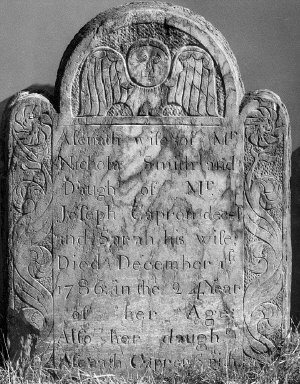 Asenath wife of Mr
Nicholas South and
Daugh of Mr
Joseph Capron decsd
and Sarah his wife,
Died December 1st
1786: in the 24 Year
of her Age
Also her daugh
Asenath Capron